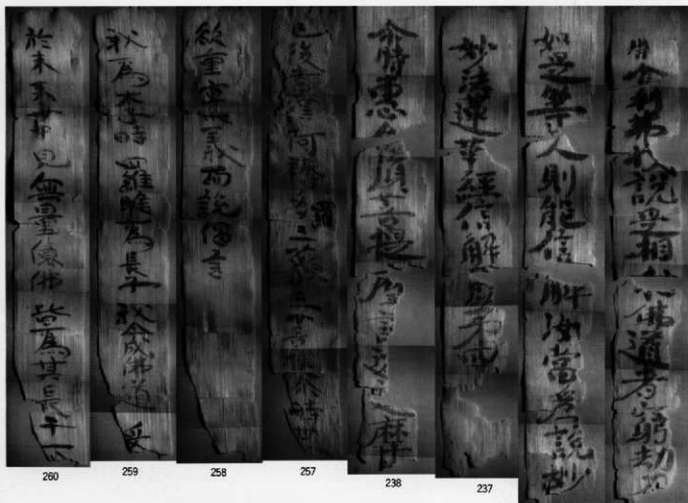 告舍利弗我說是相 佛道者窮劫不
如是等人則能信解汝當為說妙
妙法蓮華經信解品第四
尒時恵命須菩提
已後當得阿耨多羅三藐三菩提尒時世
欲重宣此義而說偈言
我為太子時羅睺為長子我今成佛道受
於未來世中見無量億佛皆為其長子一心
260 259 258 257 238 237